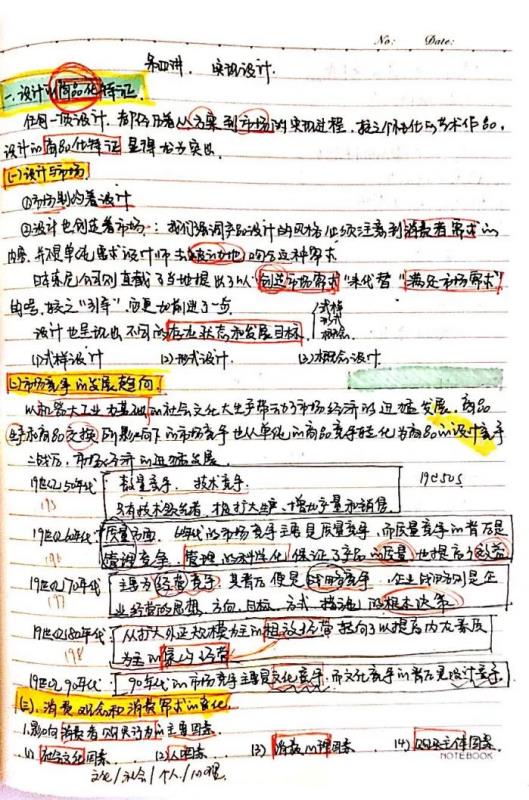 No: Date:
第四讲. 实现设计.
一.设计的商品化特征.
任何一项设计,都存在着从方案到市场的实现过程,较之个性化的艺术作品,
设计的商品化特征显得尤为突出.
(一)设计与市场
①市场制约着设计
②设计也创造着市场:我们强调产品设计的风格必须注意到消费者需求的
内容,并不单纯要求设计师去被动地响应这种需求
日本索尼公司则直截了当地提出了以"创造市场需求"来代替"满足市场需求"
的口号,较之"引导",应更加前进了一步.
设计也呈现出不同的存在状态和发展目标. 式样 形式 概念
(1)式样设计 (2)形式设计. (3)概念设计
(二)市场竞争的发展趋向.
以机器大工业为基础的社会文化大生产带动了市场经济的迅猛发展.商品
生产和商品交换的影响下的市场竞争也从单纯的商品竞争转化为商品的设计竞争
二战后,市场经济的迅猛发展.
19世纪50年代: 数量竞争、技术竞争. 19c50s
195 只有技术领先者,极力扩大生产,增加产量和销售.
19世纪60年代: 质量方面. 60年代的市场竞争主要是质量竞争,而质量竞争的背后是
196 管理竞争,管理的科学化保证了产品的质量,也提高了效益
19世纪70年代: 主要为经营竞争,其背后便是战略竞争,企业战略则是企
197 业经营的思想、方向、目标、方式、措施的根本决策
19世纪80年代: 从扩大外延规模为主的粗放经营转向了以提高内在素质
198 为主的集约经营
19世纪90年代: 90年代的市场竞争主要是文化竞争,而文化竞争的背后是设计竞争.
(三).消费观念和消费需求的变化.
1.影响消费者购买行为的主要因素.
(1)社会文化因素 (2)个人因素 (3)消费心理因素 (4)购买主体因素.
文化/社会/个人/心理
NOTEBOOK